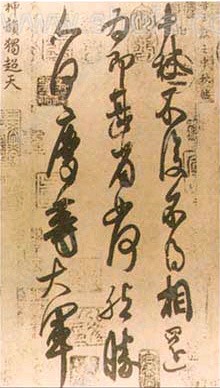 之中秋帖
中秋不復不得相還
為即甚省如何然勝
人何慶等大軍
神韻獨超天